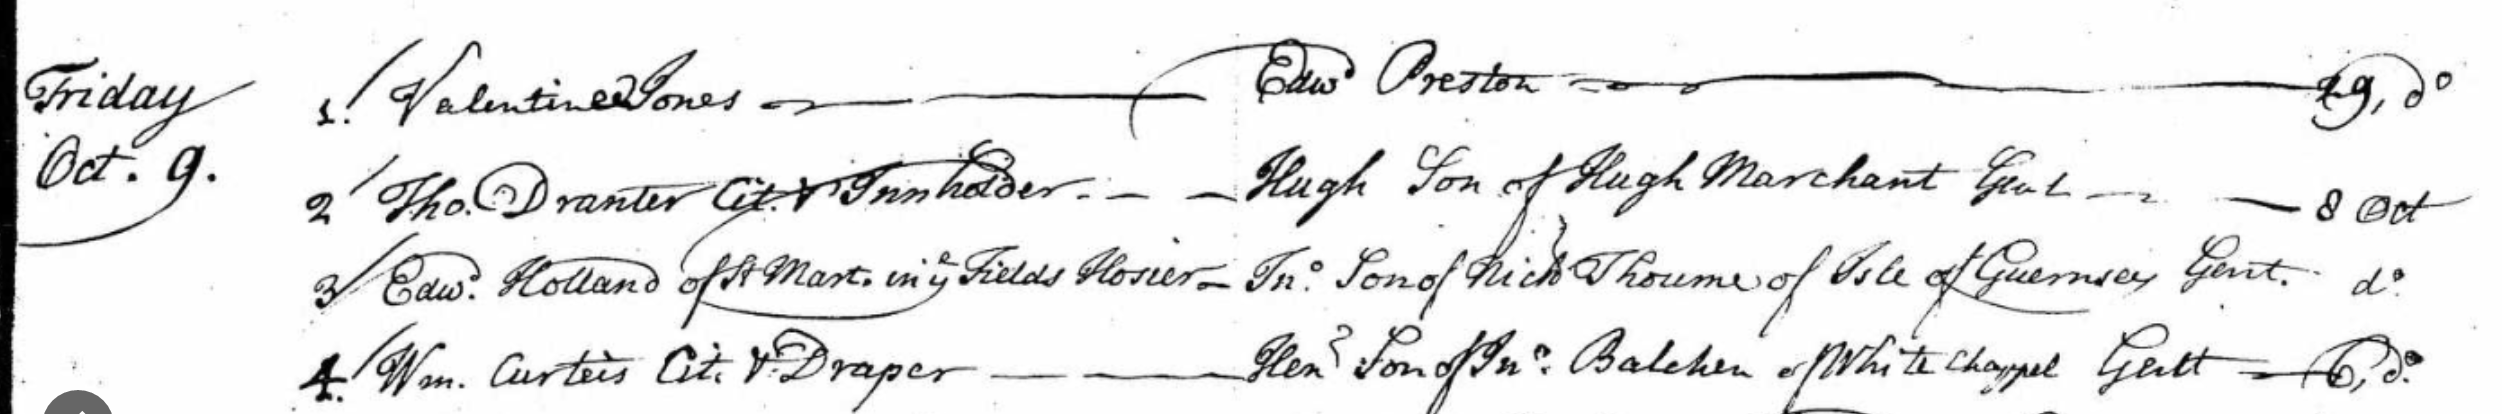 Friday
Oct. 9.
1. Valentine Jones — Edwd Preston — 29, do
2 Tho. Dranter Cit. & Innholder - - - Hugh Son of Hugh Marchant Gent — 8 Oct
3 Edwd. Holland of St Mart. in ye Fields Hosier - Jno. Son of Nichs Thoume of Isle of Guernsey Gent. do.
4. Wm. Curteis Cit. & Draper — Heny Son of Jno. Balchen of White Chappel Gent — 6, do.